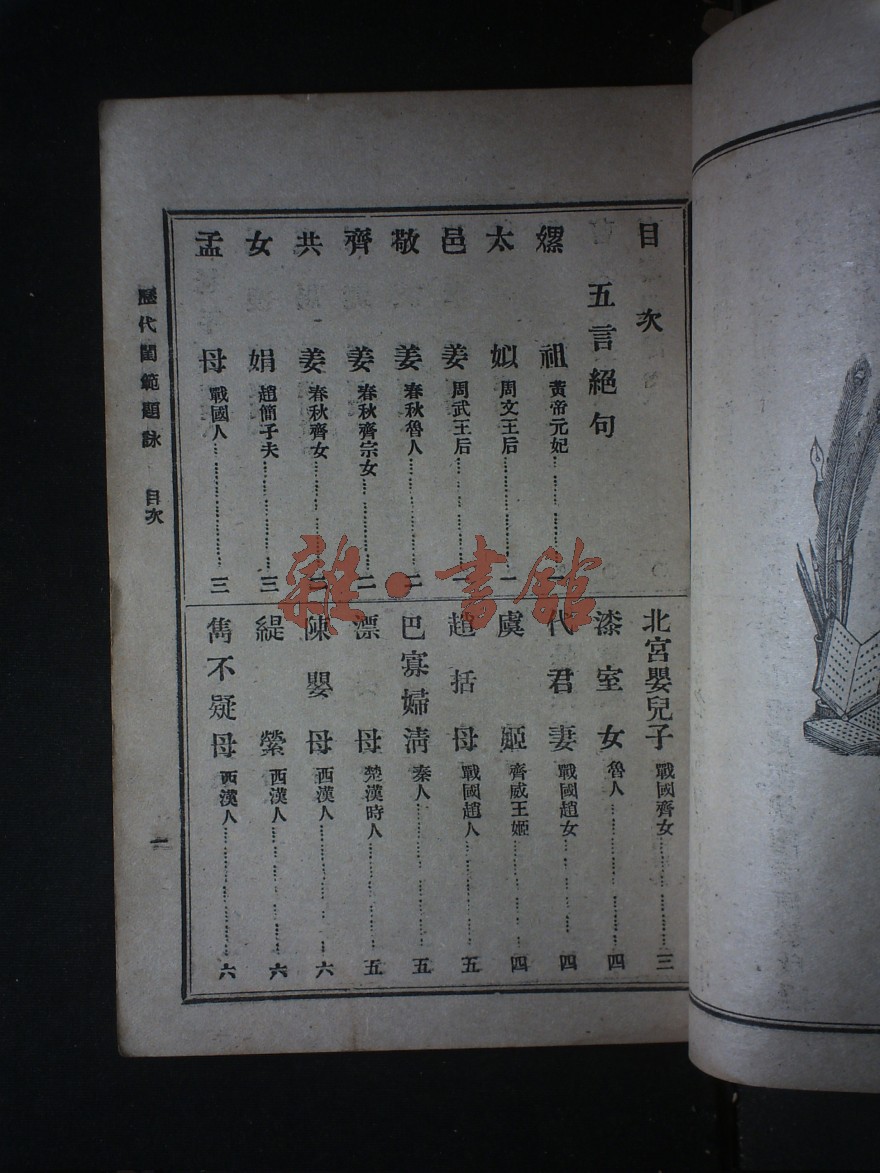 目次
五言絕句
嫘祖 黃帝元妃……一
太姒 周文王后……一
邑姜 周武王后……一
敬姜 春秋魯人……二
齊姜 春秋齊宗女……二
共姜 春秋齊女……二
女娟 趙簡子夫……三
孟母 戰國人……三
北宮嬰兒子 戰國齊女……三
漆室女 魯人……四
代君妻 戰國趙女……四
虞姬 齊威王姬……四
趙括母 戰國趙人……五
巴寡婦清 秦人……五
漂母 楚漢時人……五
陳嬰母 西漢人……六
緹縈 西漢人……六
雋不疑母 西漢人……六
歷代閨範題詠 目次
一
雜·書館